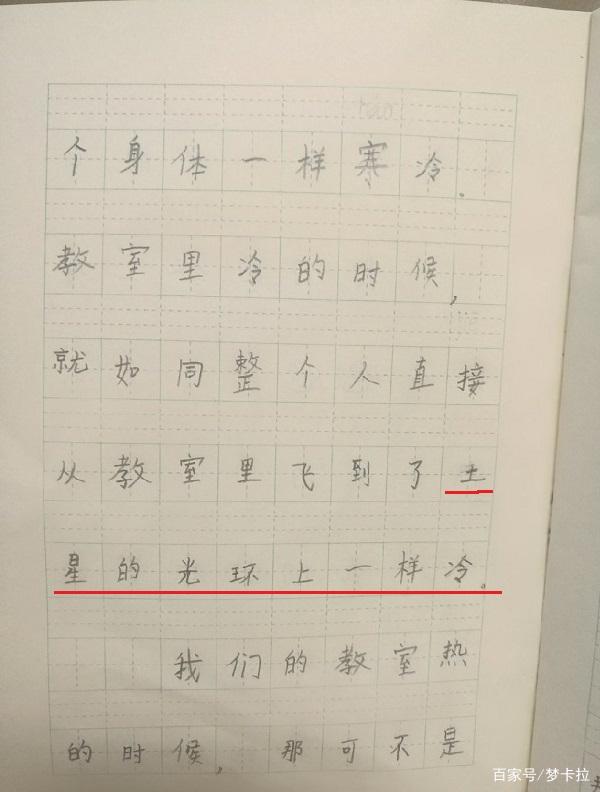 个身体一样寒冷.
教室里冷的时候,
就如同整个人直接
从教室里飞到了土
星的光环上一样冷。
我们的教室热
的时候,那可不是
百家号/梦卡拉